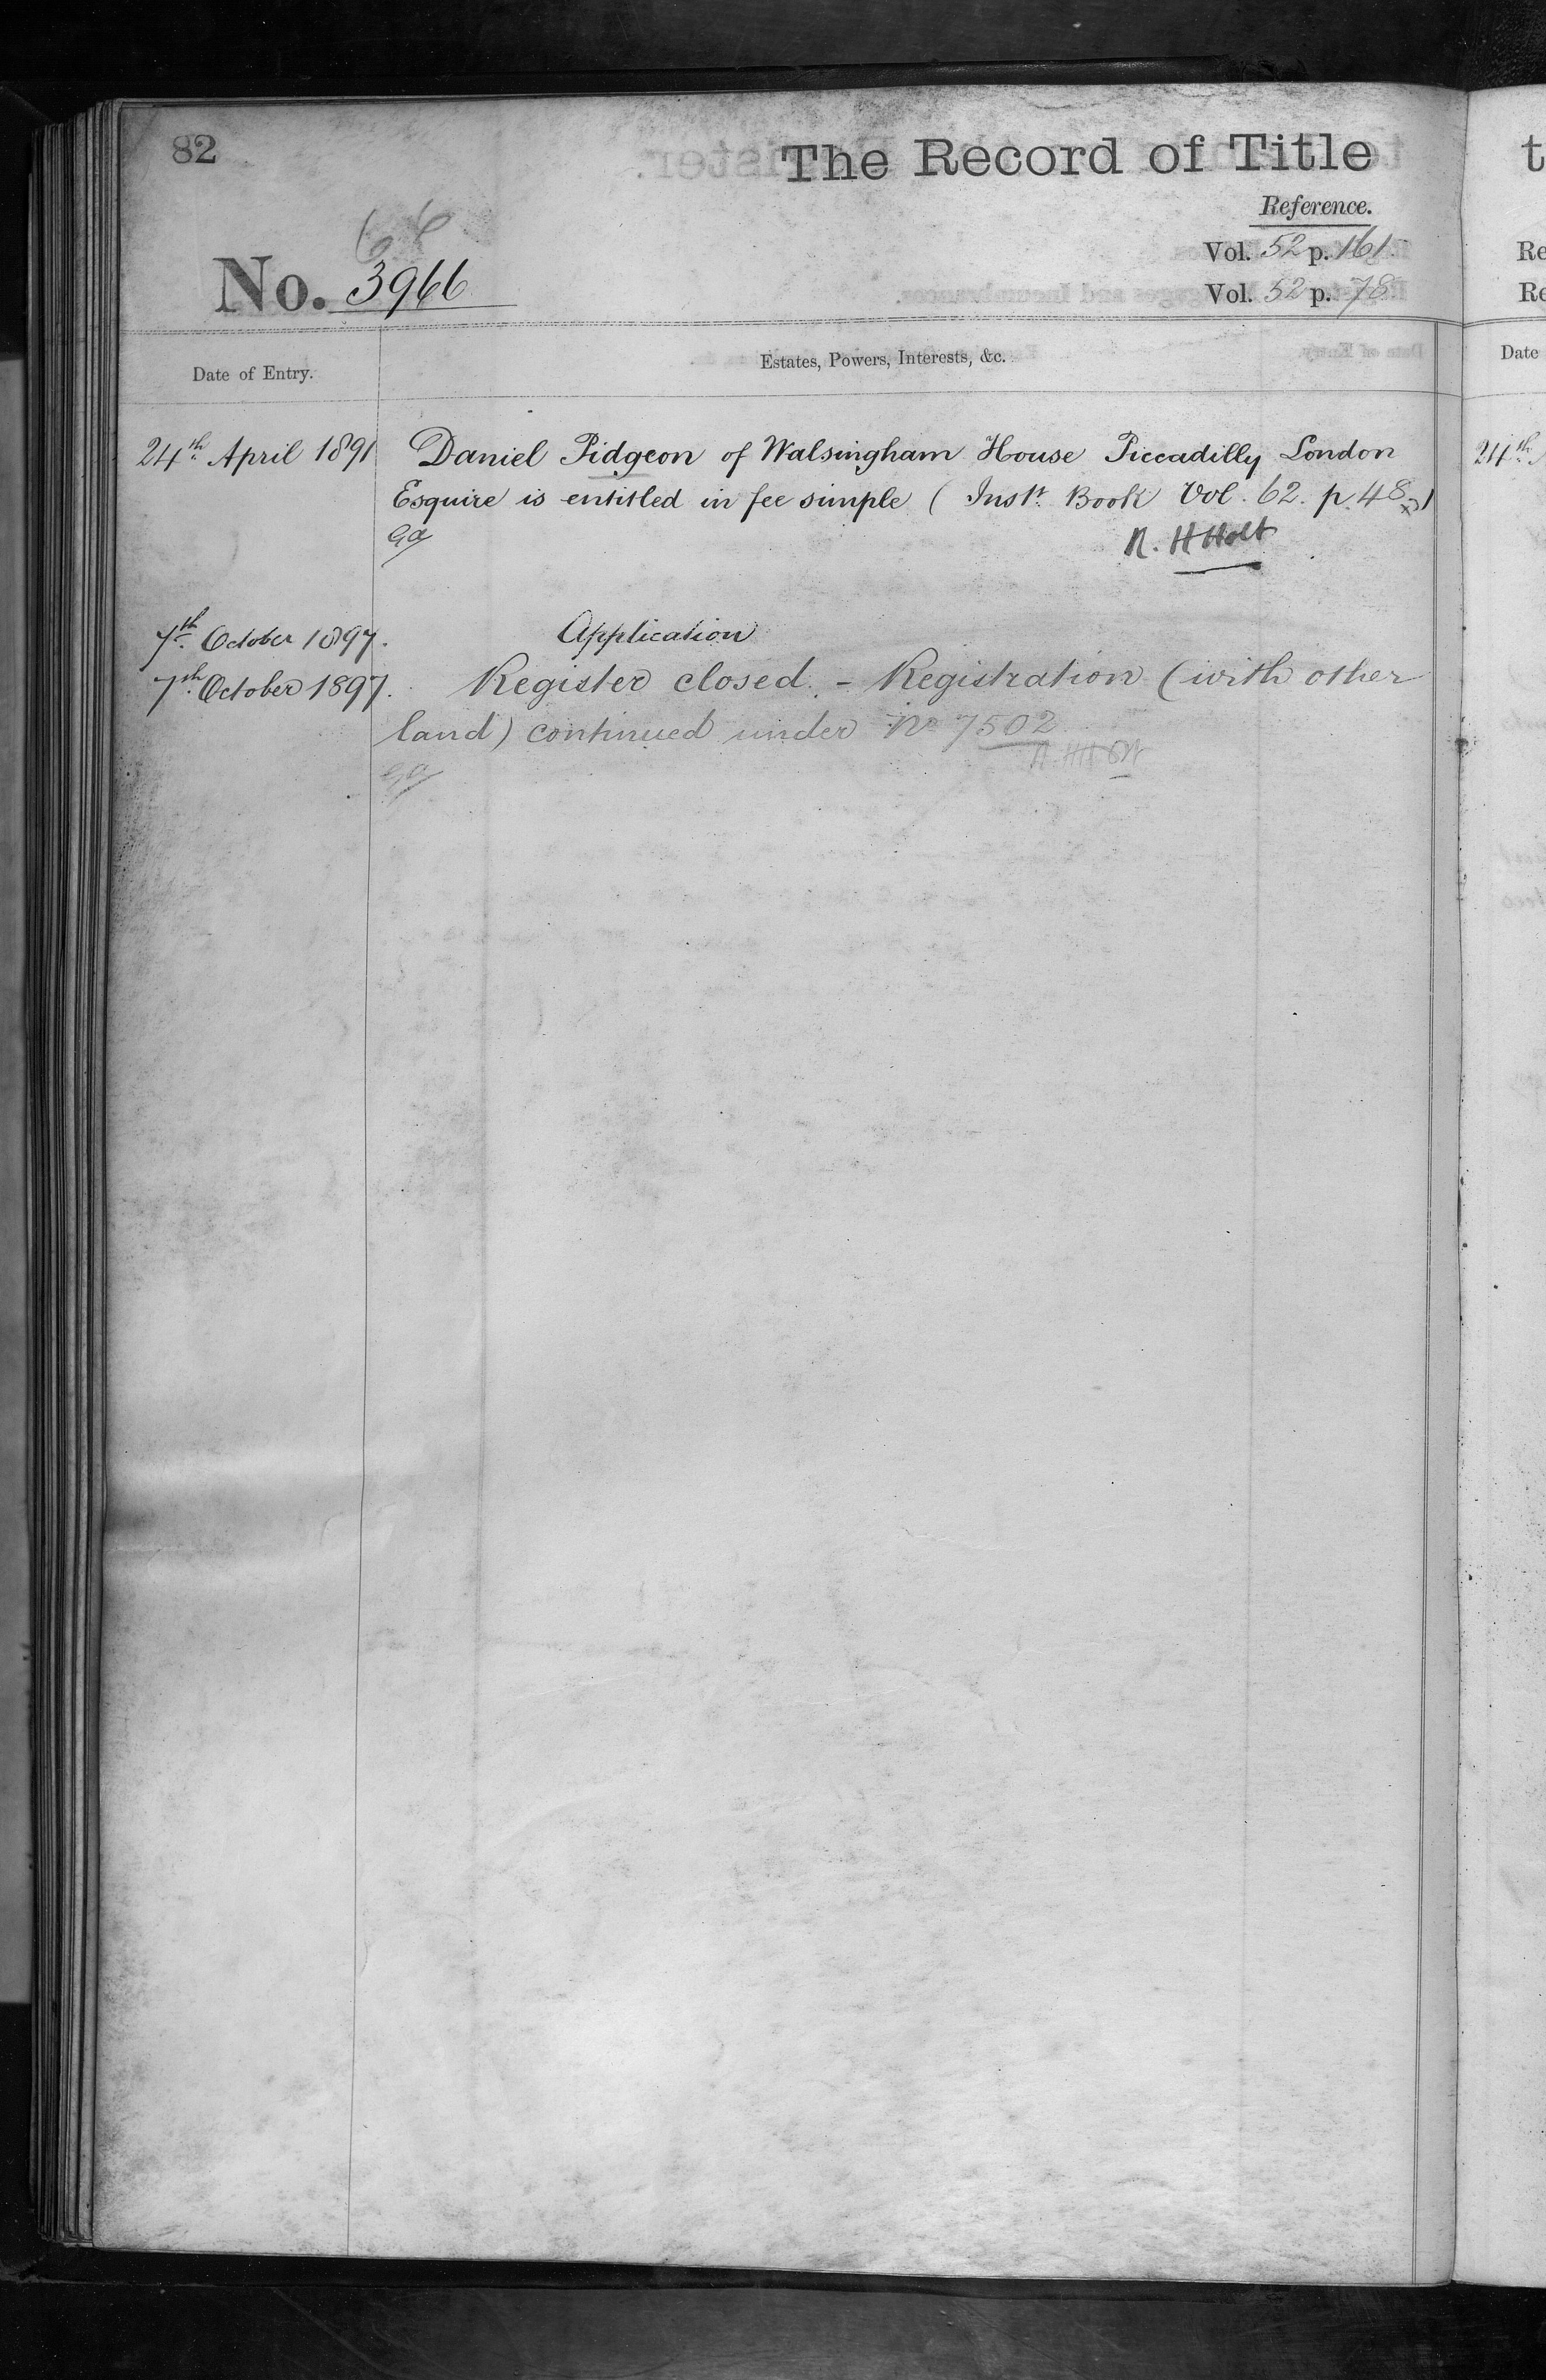 82
The Record of Title
Reference.
Vol. 52 p. 161.
No. 3966
Vol. 52 p. 78
Date of Entry.
Estates, Powers, Interests, &c.
24th April 1891 Daniel Pidgeon of Walsingham House Piccadilly London
Esquire is entitled in fee simple ( Inst. Book Vol. 62. p. 48 )
R. H Holt
7th October 1897. Application
7th October 1897. Register closed. - Registration (with other
land) continued under No 7502
t
Re
Re
Date
24th